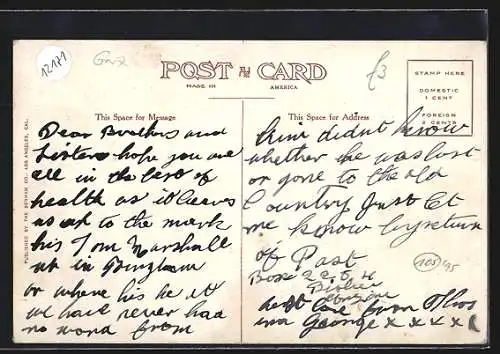 12171
POST CARD
MADE IN AMERICA
£3
STAMP HERE
DOMESTIC
1 CENT
FOREIGN
2 CENTS
This Space for Message
This Space for Address
PUBLISHED BY THE BENHAM CO., LOS ANGELES, CAL.
Dear Brothers and
Sisters hope you are
all in the best of
health as it leaves
us at to the mark
his Tom Marshall
at in Bingham
or where his he is
we have never had
no word from
him didnt know
whether he was lost
or gone to the old
Country Just let
me know by return
of Post
Box 225 H
Bisbee
Arizona
best love from
and George x x x x
105/95